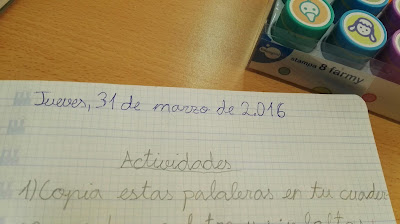 stampa 8 farmy
Jueves, 31 de marzo de 2.016
Actividades
1) Copia estas palabras en tu cuader